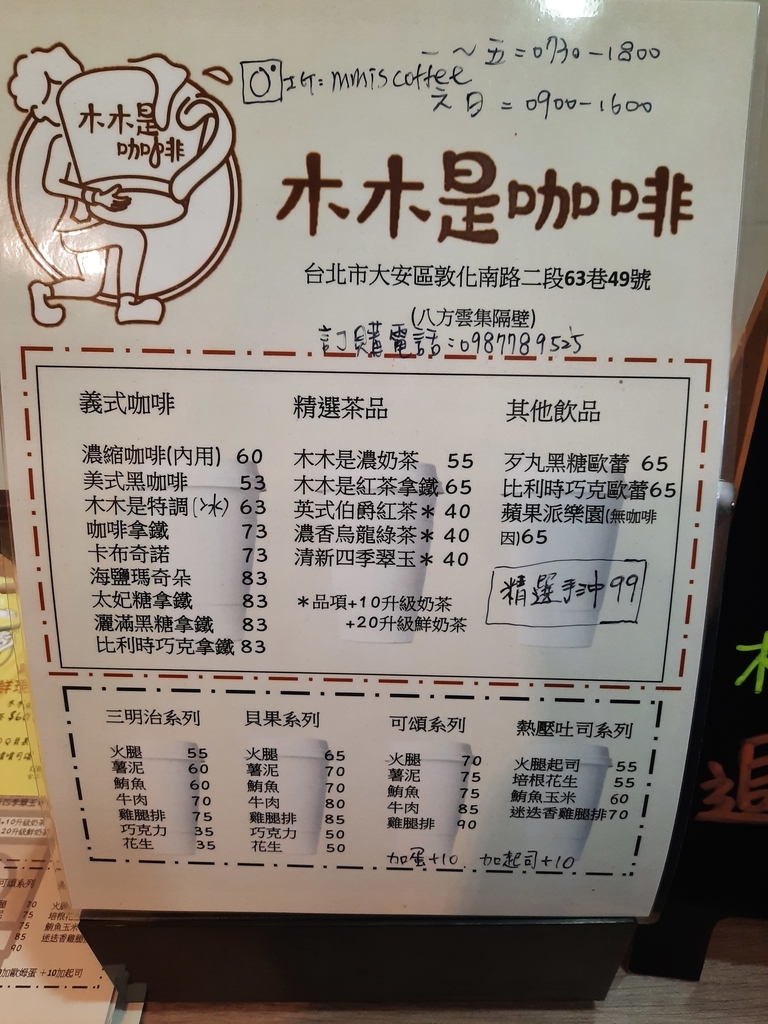 一~五=0730-1800
IG: mmiscoffee
六日=0900-1600
木木是
咖啡
木木是咖啡
台北市大安區敦化南路二段63巷49號
(八方雲集隔壁)
訂購電話:0987789525
義式咖啡
濃縮咖啡(內用) 60
美式黑咖啡 53
木木是特調(冰) 63
咖啡拿鐵 73
卡布奇諾 73
海鹽瑪奇朵 83
太妃糖拿鐵 83
灑滿黑糖拿鐵 83
比利時巧克拿鐵 83
精選茶品
木木是濃奶茶 55
木木是紅茶拿鐵 65
英式伯爵紅茶* 40
濃香烏龍綠茶* 40
清新四季翠玉* 40
*品項+10升級奶茶
+20升級鮮奶茶
其他飲品
歹丸黑糖歐蕾 65
比利時巧克歐蕾65
蘋果派樂園(無咖啡
因)65
精選手沖 99
三明治系列
火腿 55
薯泥 60
鮪魚 60
牛肉 70
雞腿排 75
巧克力 35
花生 35
貝果系列
火腿 65
薯泥 70
鮪魚 70
牛肉 80
雞腿排 85
巧克力 50
花生 50
可頌系列
火腿 70
薯泥 75
鮪魚 75
牛肉 85
雞腿排 90
熱壓吐司系列
火腿起司 55
培根花生 55
鮪魚玉米 60
迷迭香雞腿排70
加蛋+10. 加起司+10
可頌系列
70
75
75
85
90
+10加起司